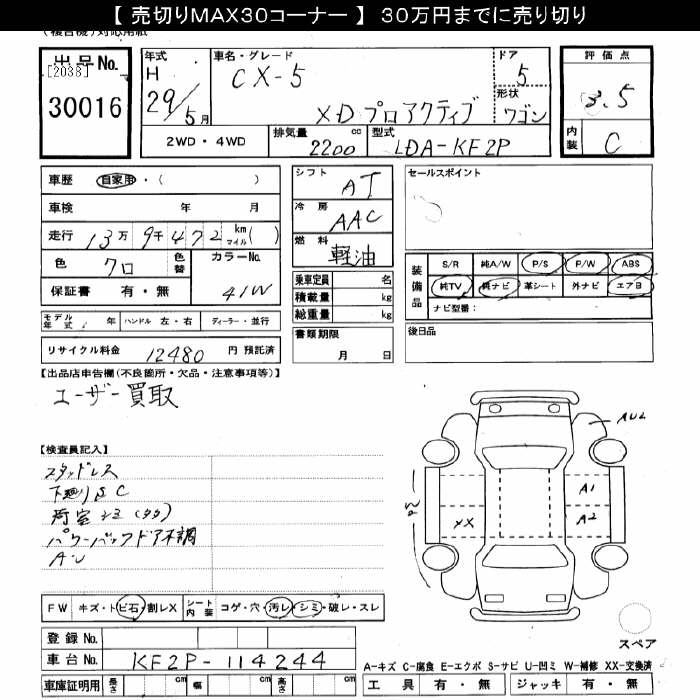 【 売切りMAX30コーナー 】 30万円までに売り切り
(複合機)対応用紙
出品No.
[2038]
30016
年式
H
29/5月
車名・グレード
CX-5
XD プロアクティブ
ドア
5
形状
ワゴン
2WD・4WD
排気量
cc
2200
型式
LDA-KF2P
評価点
3.5
内装
C
車歴 自家用・( )
車検 年 月
走行 13万 9千472 km マイル( )
色 クロ 色替 カラーNo.
41W
保証書 有・無
モデル年式 年 ハンドル 左・右 ディーラー・並行
リサイクル料金 12480 円 預託済
シフト
AT
冷房
AAC
燃料
軽油
乗車定員 名
積載量 kg
総重量 kg
書類期限
月 日
セールスポイント
装備品
S/R 純A/W P/S P/W ABS
純TV 純ナビ 革シート 外ナビ エアB
ナビ型番：
後日品
【出品店申告欄(不良箇所・欠品・注意事項等)】
ユーザー買取
【検査員記入】
スタッドレス
下廻りSC
荷室シミ(タタ)
パワーバックドア不調
A・U
AU2
A1
A2
XX
FW キズ・トビ石・割レX シート内装 コゲ・穴・汚レ・シミ・破レ・スレ
登録No.
車台No. KF2P-114244
車庫証明用 長さ cm 幅 cm 高さ cm
スペア
A-キズ C-腐食 E-エクボ S-サビ U-凹ミ W-補修 XX-交換済
工具 有・無 ジャッキ 有・無